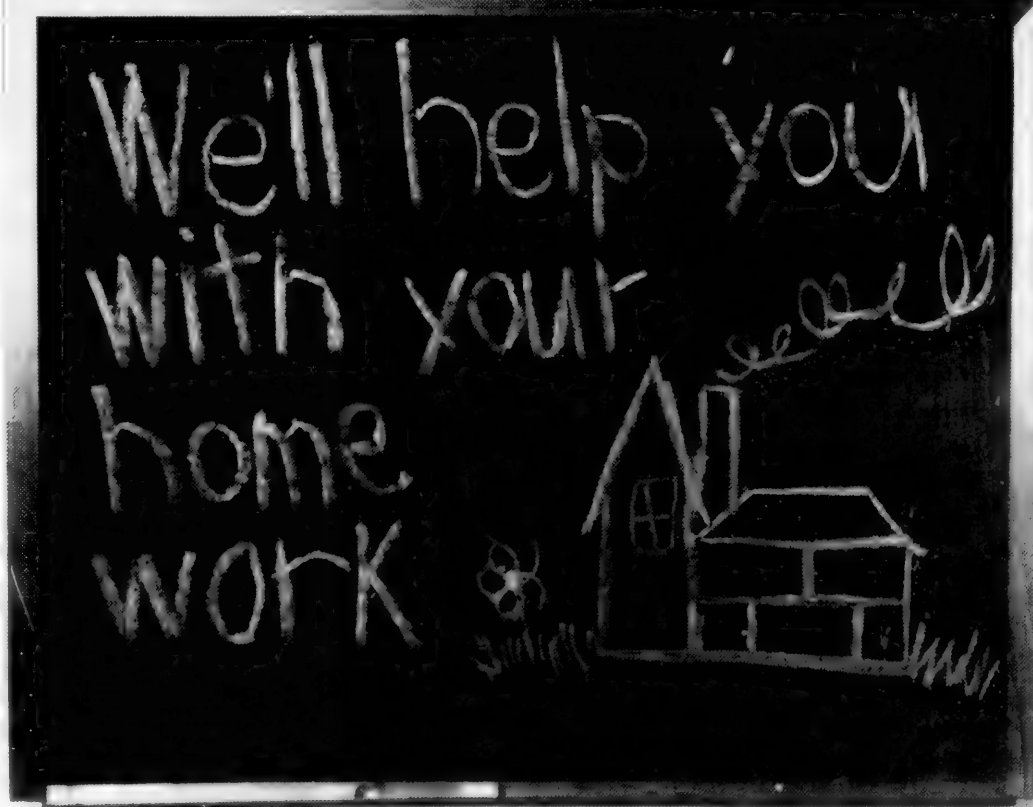 We'll help you
with your
home
work